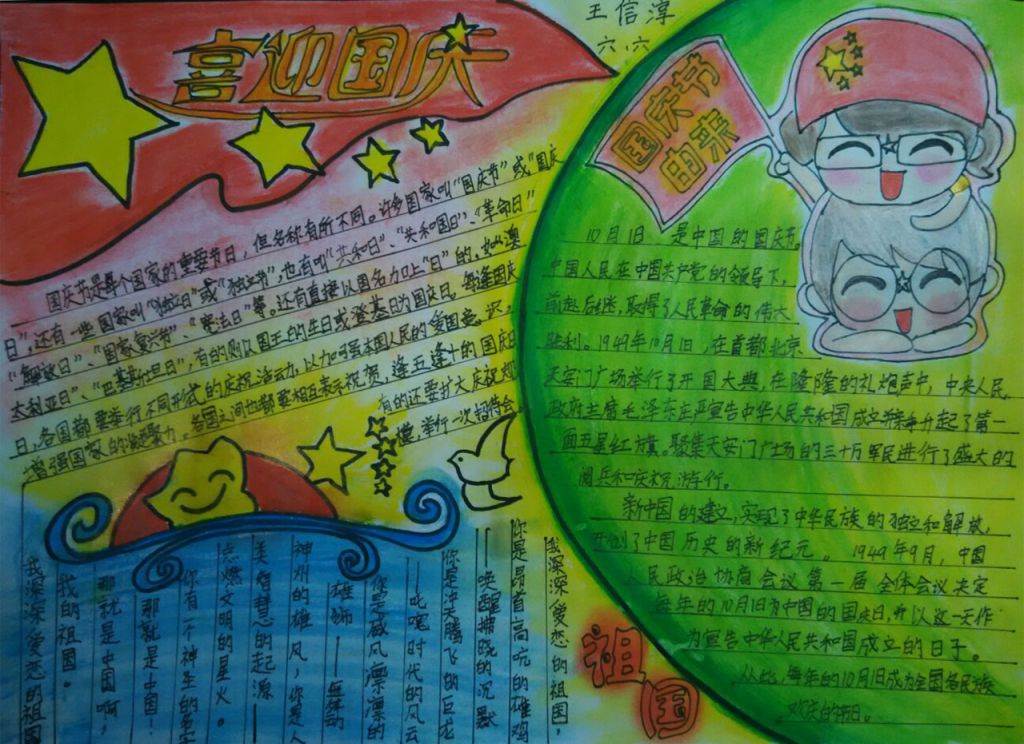 喜迎国庆
王信淳
六.六
国庆节是每个国家的重要节日，但名称有所不同。许多国家叫“国庆节”或“国庆
日”，还有一些国家叫“独立日”或“独立节”，也有叫“共和日”、“共和国日”、“革命日”
“解放日”、“国家复兴节”、“宪法日”等。还有直接以国名加上“日”的，如“澳
大利亚日”、“巴基斯坦日”，有的则以国王的生日或登基的为国庆日。每逢国庆
日，各国都要举行不同形式的庆祝活动，以加强本国人民的爱国意识，
增强国家的凝聚力。各国之间也都要相互表示祝贺，逢五逢十的国庆日
有的还要扩大庆祝规
模，举行一次招待会
国庆节
由来
10月1日，是中国的国庆节。
中国人民在中国共产党的领导下，
前赴后继，取得了人民革命的伟大
胜利。1949年10月1日，在首都北京
天安门广场举行了开国大典，在隆隆的礼炮声中，中央人民
政府主席毛泽东庄严宣告中华人民共和国成立并升起了第一
面五星红旗。聚集天安门广场的三十万军民进行了盛大的
阅兵和庆祝游行。
新中国的建立，实现了中华民族的独立和解放，
开创了中国历史的新纪元。1949年9月，中国
人民政治协商会议第一届全体会议决定
每年的10月1日为中国的国庆日，并以这一天作
为宣告中华人民共和国成立的日子。
从此，每年的10月1日成为全国各民族
欢庆的节日。
我深深爱恋的祖国，
你是昂首高吭的雄鸡
——唤醒拂晓的沉默
你是冲天腾飞的巨龙
——叱咤时代的风云
你是威风凛凛的
雄狮——
神州的雄风，你是人
类智慧的起源——
点燃文明的星火。
你有一个神圣的名字
那就是中国！
那就是中国啊，
我的祖国。
我深深爱恋的祖国
祖国